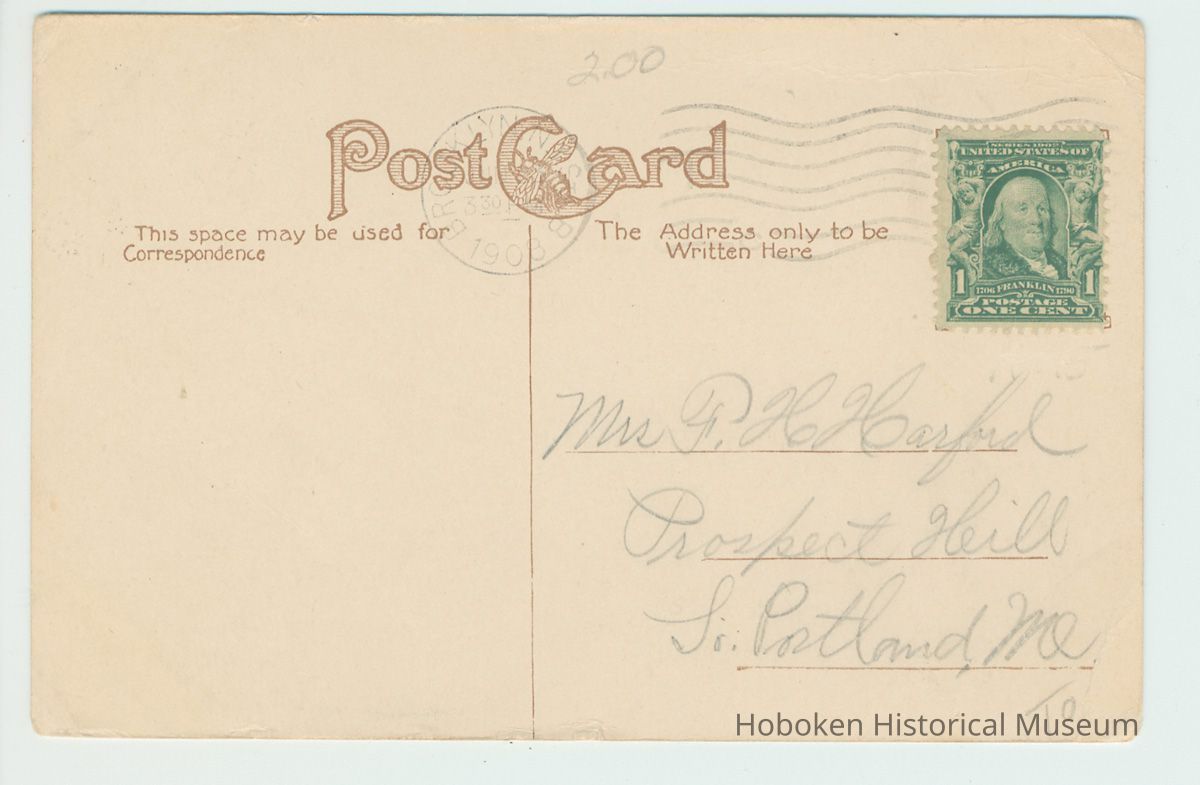 2.00
Post Card
BROOKLYN, N.Y.
3 30 P
1908
B
This space may be used for
Correspondence
The Address only to be
Written Here
SERIES 1902
UNITED STATES OF
AMERICA
1 1
1706 FRANKLIN 1790
POSTAGE
ONE CENT
Mrs F. H Harford
Prospect Hill
So. Portland, Me
Hoboken Historical Museum